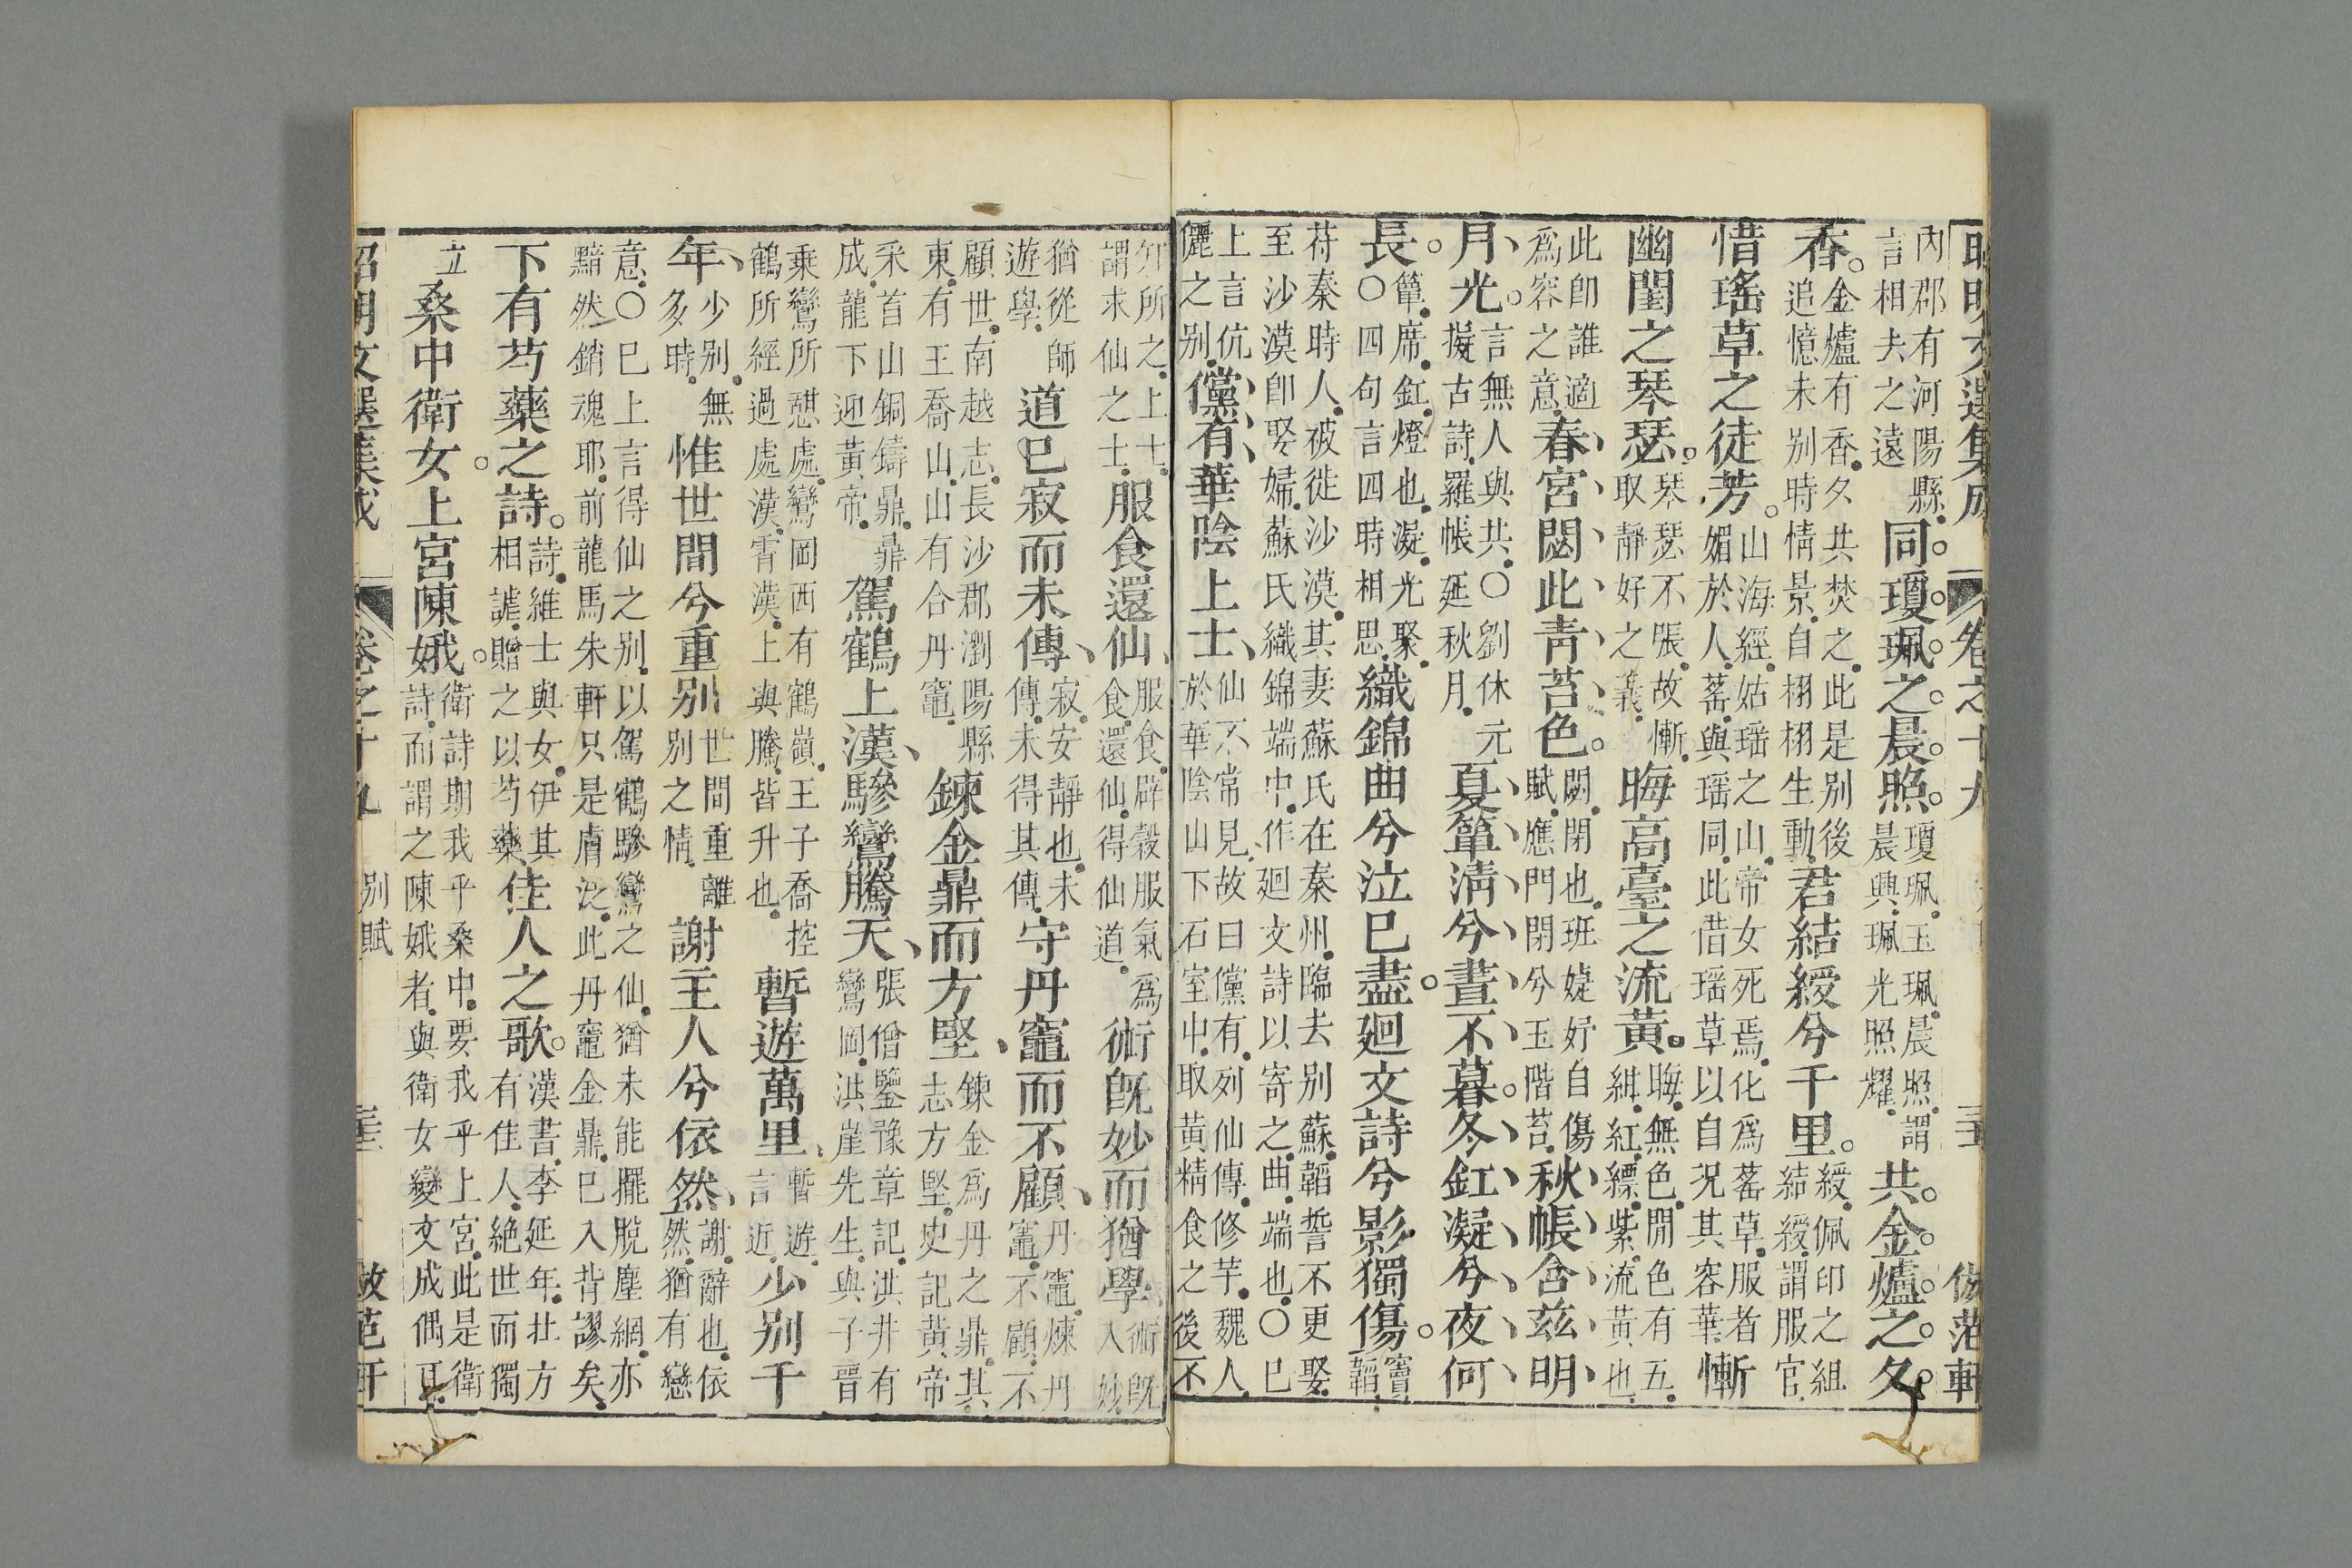 昭明文選集成 卷之十九 倣范軒
內郡有河陽縣言相去之遠同瓊珮之晨照瓊珮玉珮晨照謂晨興珮光照耀共金爐之夕
香金爐有香夕共焚之此是別後追憶未別時情景自栩栩生動君結綬兮千里綬佩印之組結綬謂服官
惜瑤草之徒芳山海經姑瑶之山帝女死焉化爲䔄草服者媚於人䔄與瑶同此借瑶草以自況其容華慚
幽閨之琴瑟琴瑟不張故慚取靜好之義晦高臺之流黃晦無色閒色有五紺紅縹紫流黃也
此卽誰適爲容之意春宮閟此青苔色閟閉也班婕妤自傷賦應門閉兮玉階苔秋帳含茲明
月光言無人與共○劉休元擬古詩羅帳延秋月夏簟淸兮晝不暮冬釭凝兮夜何
長簟席釭燈也凝光聚○四句言四時相思織錦曲兮泣已盡廻文詩兮影獨傷竇韜
苻秦時人被徙沙漠其妻蘇氏在秦州臨去別蘇韜誓不更娶至沙漠卽娶婦蘇氏織錦端中作廻文詩以寄之曲端也○已
上言伉儷之別儻有華陰上士仙不常見故曰儻有列仙傳修芋魏人於華陰山下石室中取黃精食之後不
知所之上士謂求仙之士服食還仙服食辟穀服氣爲食還仙得仙道術旣妙而猶學術旣入妙
猶從師遊學道已寂而未傳寂安靜也未傳未得其傳守丹竈而不顧丹竈煉丹竈不顧不
顧世南越志長沙郡瀏陽縣東有王喬山山有合丹竈鍊金鼎而方堅鍊金爲丹之鼎其志方堅史記黃帝
采首山銅鑄鼎鼎成龍下迎黃帝駕鶴上漢驂鸞騰天張僧鑒豫章記洪井有鸞岡洪崖先生與子晉
乘鸞所憇處鸞岡西有鶴嶺王子喬控鶴所經過處漢霄漢上與騰皆升也暫遊萬里暫遊言近少別千
年少別無多時惟世間兮重別世間重離別之情謝主人兮依然謝辭也依然猶有戀
意○已上言得仙之別以駕鶴驂鸞之仙猶未能擺脫塵網亦黯然銷魂耶前龍馬朱軒只是膚泛此丹竈金鼎已入背謬矣
下有芍藥之詩詩維士與女伊其相謔贈之以芍藥佳人之歌漢書李延年北方有佳人絕世而獨
立桑中衛女上宮陳娥衛詩期我乎桑中要我乎上宮此是衛詩而謂之陳娥者與衛女變文成偶耳
昭明文選集成 卷之十九 別賦 倣范軒